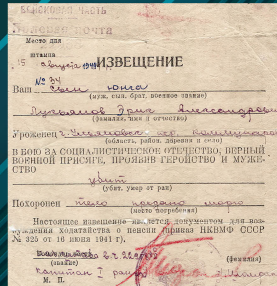 ВОИНСКАЯ ЧАСТЬ
Полевая почта
Место для
штампа
15 августа 194 ИЗВЕЩЕНИЕ
№ 34
Ваш сын юнга
(муж, сын, брат, военное звание)
Лукьянов Эрик Александрович
(фамилия, имя и отчество)
Уроженец г. Ульяновск
(область, район, деревня и село)
В БОЮ ЗА СОЦИАЛИСТИЧЕСКОЕ ОТЕЧЕСТВО, ВЕРНЫЙ
ВОЕННОЙ ПРИСЯГЕ, ПРОЯВИВ ГЕРОЙСТВО И МУЖЕ-
СТВО
убит
(убит, умер от ран)
Похоронен тело предано морю
(место погребения)
Настоящее извещение является документом для воз-
буждения ходатайства о пенсии (приказ НКВМФ СССР
№ 325 от 16 июня 1941 г).
в.ч.
(звание) (фамилия)
капитан I ранга
М. П.